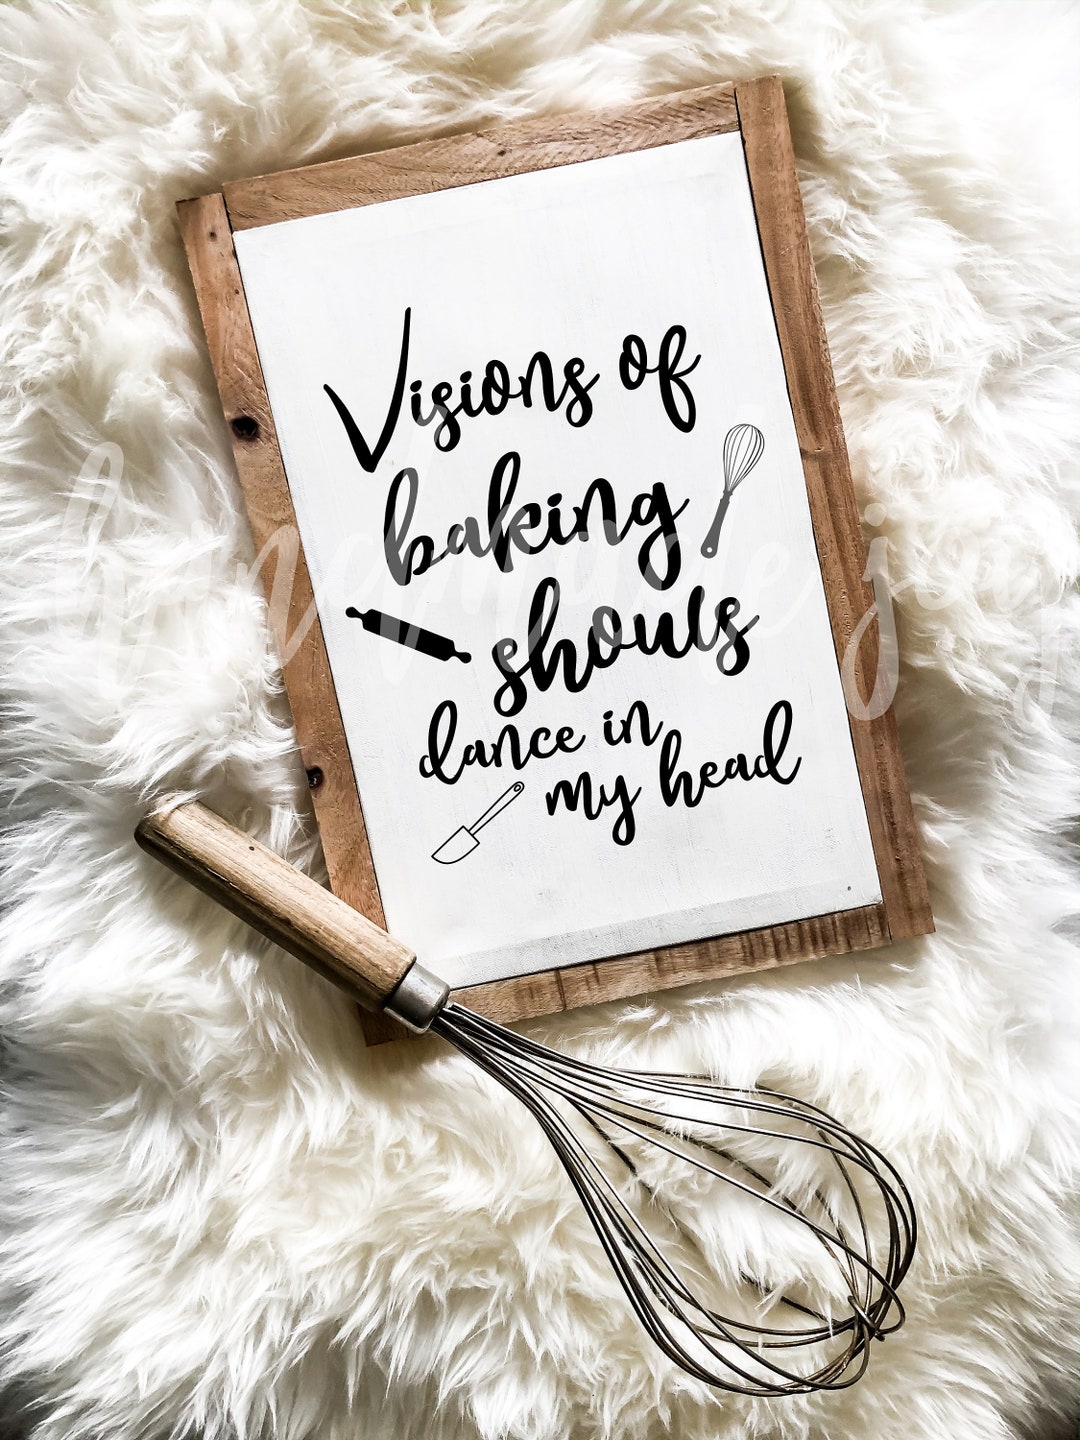 Visions of
baking
shows
dance in
my head
handmade joy